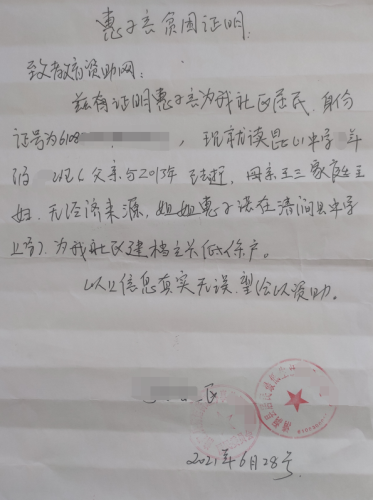 惠子言贫困证明
致教育资助网:
兹有证明惠子言为我社区居民,身份
证号为6108,现就读昆山中学年
级 班(父亲与2013年去逝,母亲王三家庭主
妇.无经济来源,姐姐惠子诺在清涧县中学
上学).为我社区建档立卡低保户。
以上信息真实无误.望给以资助。
区
2021年6月28号